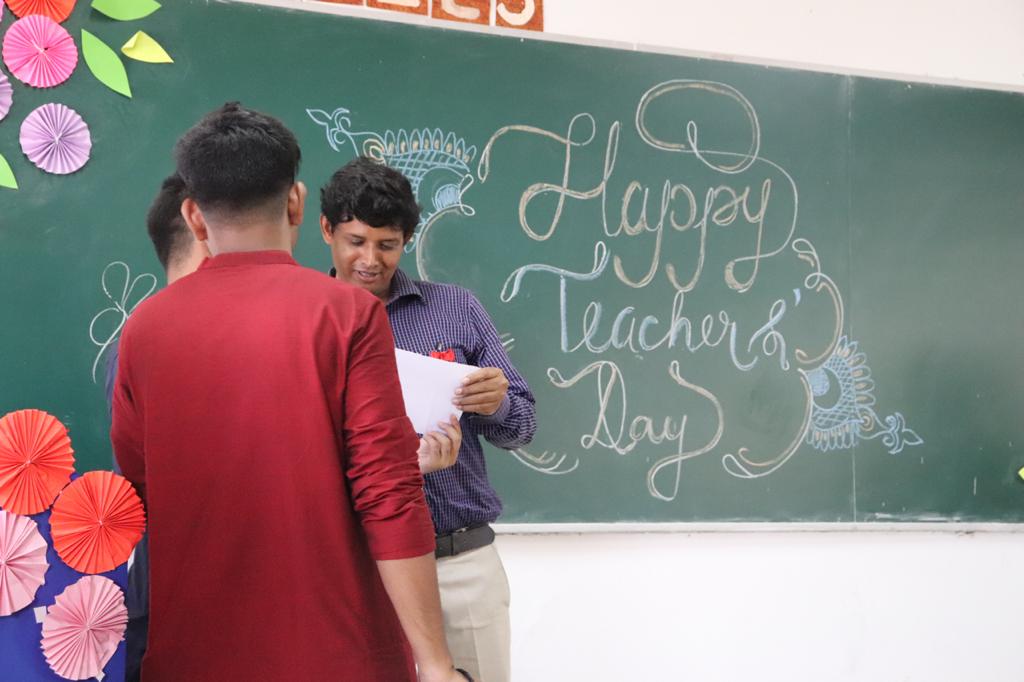 Happy
Teachers'
Day